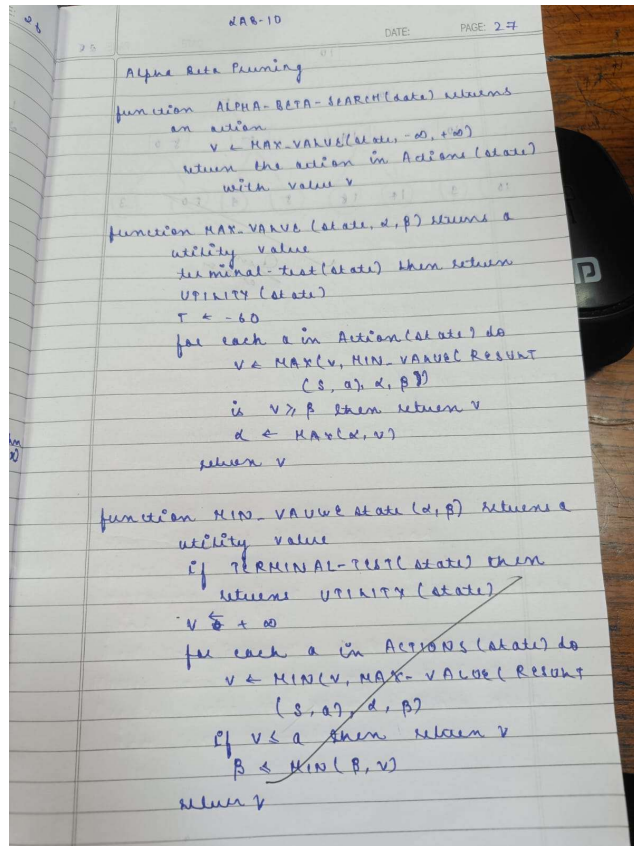 LAB-10
DATE:
PAGE: 27
Alpha Beta Pruning
function ALPHA-BETA-SEARCH (state) returns
an action
v ← MAX-VALUE (state, -∞, +∞)
return the action in Actions (state)
with value v
function MAX-VALUE (state, α, β) returns a
utility value
terminal-test (state) then return
UTILITY (state)
T ← -60
for each a in Action (state) do
v ← MAX (v, MIN-VALUE( RESULT
(S, a), α, β ))
is v ≥ β then return v
α ← MAX (α, v)
return v
function MIN-VAUWE state (α, β) returns a
utility value
if TERMINAL-TEST( state) then
returns UTILITY (state)
v ← + ∞
for each a in ACTIONS (state) do
v ← MIN (v, MAX- VALUE ( RESULT
(S, a), α, β)
if v ≤ a then return v
β ← MIN ( β, v)
return v